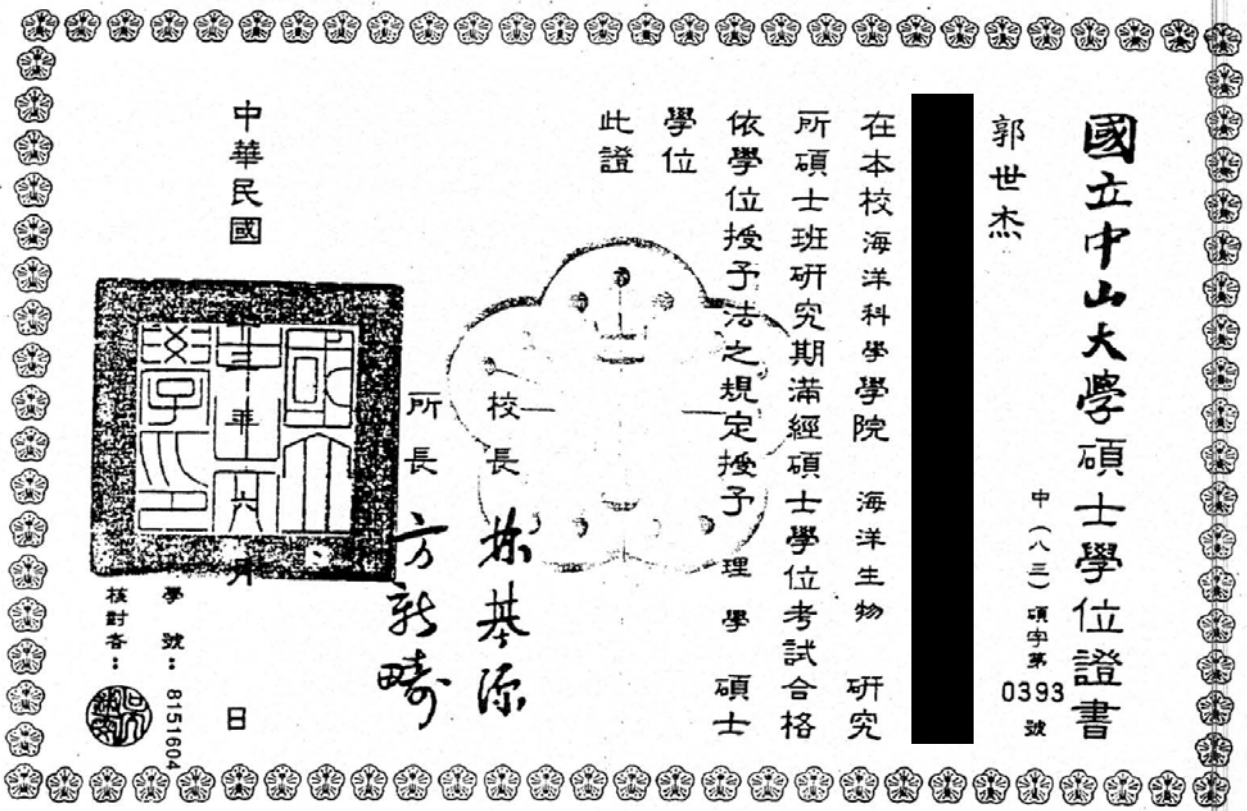 國立中山大學碩士學位證書
中(八三)碩字第0393號
郭世杰
在本校海洋科學學院 海洋生物 研究
所碩士班研究期滿經碩士學位考試合格
依學位授予法之規定授予 理 學 碩士
學位
此證
校長 林基源
所長 方新疇
中華民國 十三年 六月 日
學 號:8151604
核對者: